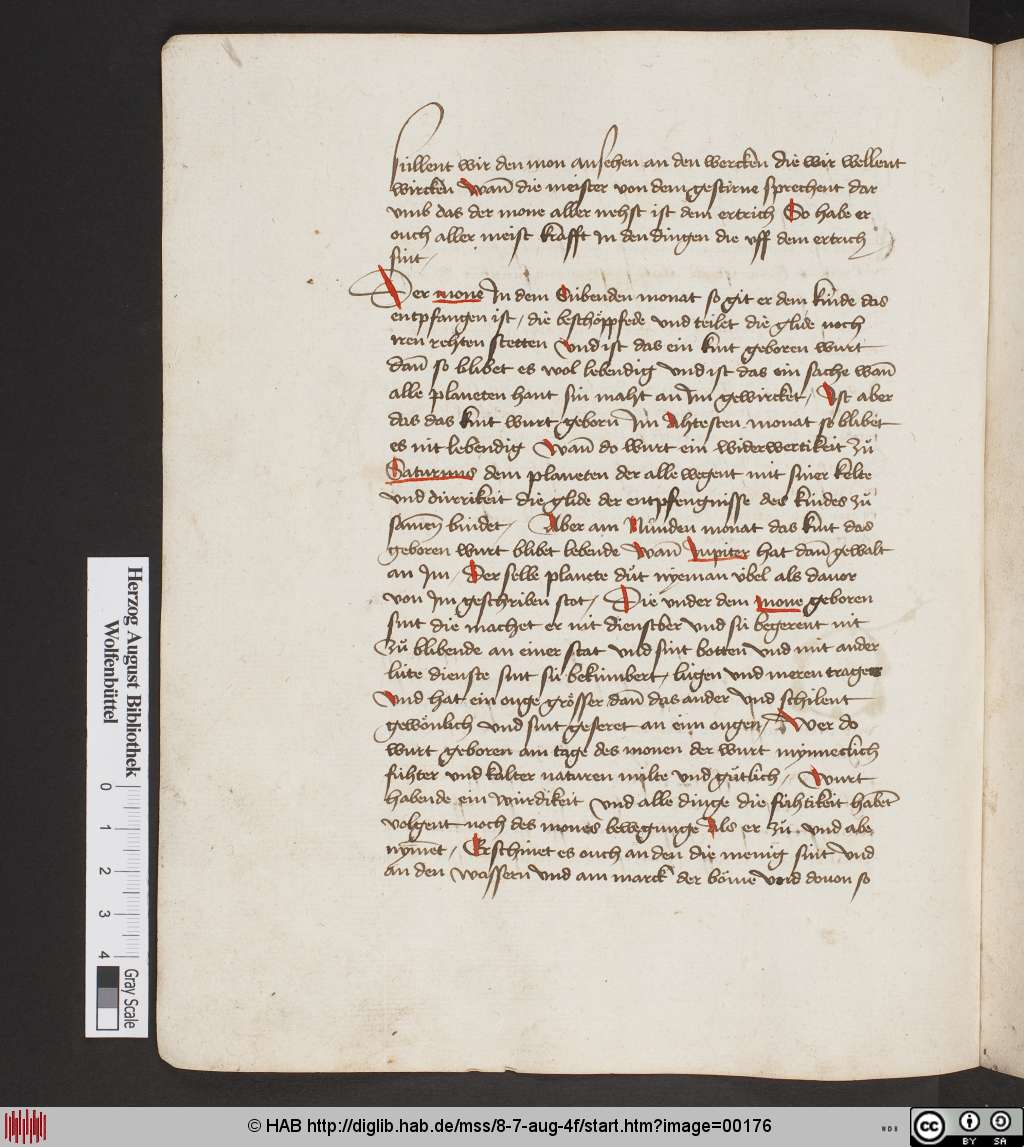 süllent wir den mon ansehen an den wercken die wir wellent
wircken Wan̄ die meister von dem gestirne sprechent dar
vmb das der mone aller nehst ist dem ertrich So habe er
ouch aller meist krafft In den dingen die vff dem ertrich
sint /
Der mone In dem Sübenden monat so git er dem kinde das
entpfangen ist / die beschöppfede vnd teilet die glide noch
iren rehten stetten Vnd ist das ein kint geboren wurt
dan̄ so blibet es wol lebendig Vnd ist das ein sache wan̄
alle planeten hant sin maht an Im gewircket / Ist aber
das das kint wurt geborn̄ Im Ahtesten monat so blibet
es nit lebendig Wan̄ do wurt ein widerwertikeit zů
Saturnus dem planeten der alle wegent mit siner kelte
vnd dürrikeit die glide der entpfengnisse des kindes zů
samen̄ bindet / Aber am Nünden monat das kint das
geboren wurt blibet lebende Wan̄ Jupiter hat dan̄ gewalt
an Im / Der selbe planete důt nyeman übel als dauor
von Im geschriben stot / Die vnder dem mone geboren
sint die machet er nit dienstber vnd sü begerent nit
Zů blibende an einer stat vnd sint botten vnd mit ander
lüte dienste sint sü bekümbert / lügen vnd meren tragen
Vnd hat ein ouge grösser dan̄ das ander Vnd schilent
gewönlich vnd sint geseret an eim ougen / Wer do
wurt geboren am tage des monen der wurt mynneclich
fühter vnd kalter naturen milte vnd gütlich / Wurt
habende ein würdikeit Vnd alle dinge die fühtikeit haben̄
volgent noch des mones bewegunge Als er zů vnd abe
nymet / Erschinet es ouch an den die menig sint vnd
an den wassern vnd am marck der böme vnd douon so
Herzog August Bibliothek
Wolfenbüttel
0 1 2 3 4
Gray Scale
© HAB http://diglib.hab.de/mss/8-7-aug-4f/start.htm?image=00176
WDB
cc BY SA